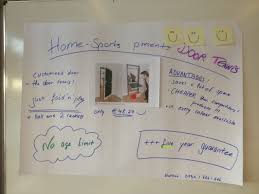 Home-Sports presents
DOOR TENNIS
Customized door
- the door tennis!
just fold'n'play
+ ball and 2 rackets
only € 48.20
ADVANTAGES:
- saves a lot of space
- CHEAPER than competitor's
products
- in every colour available
No age limit
+++ five year guarantee